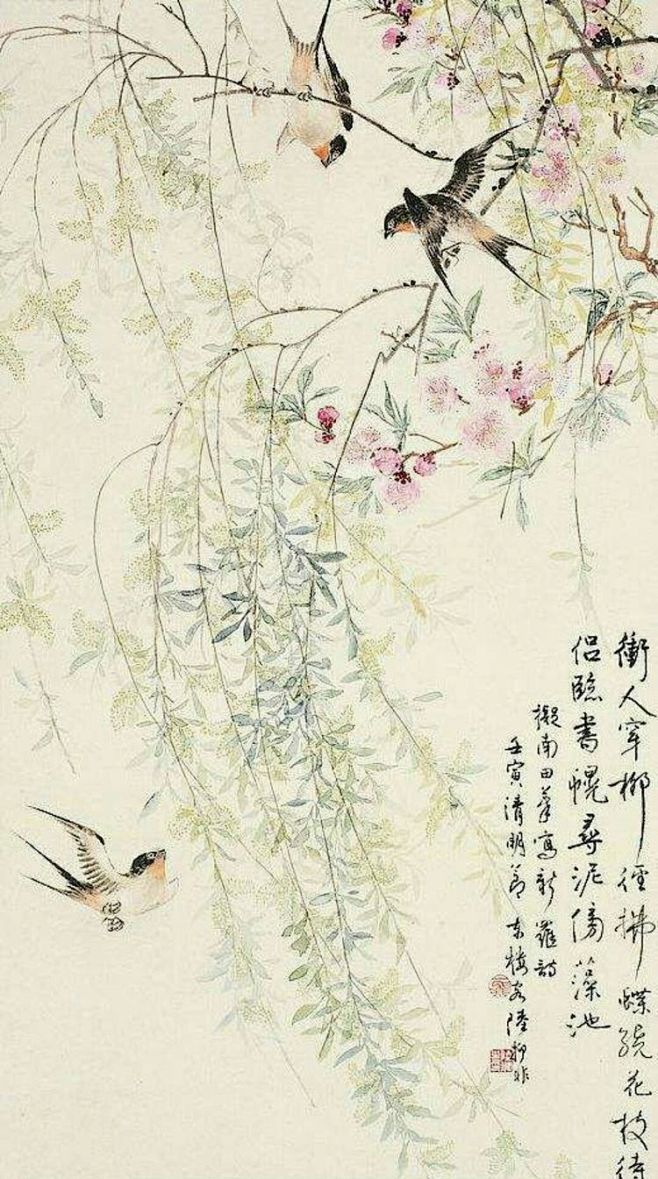 衝人穿柳徑拂蝶繞花枝待
侣臨書幌尋泥傍藻池
擬南田筆寫新羅詩
壬寅清明節 東梅客陸抑非